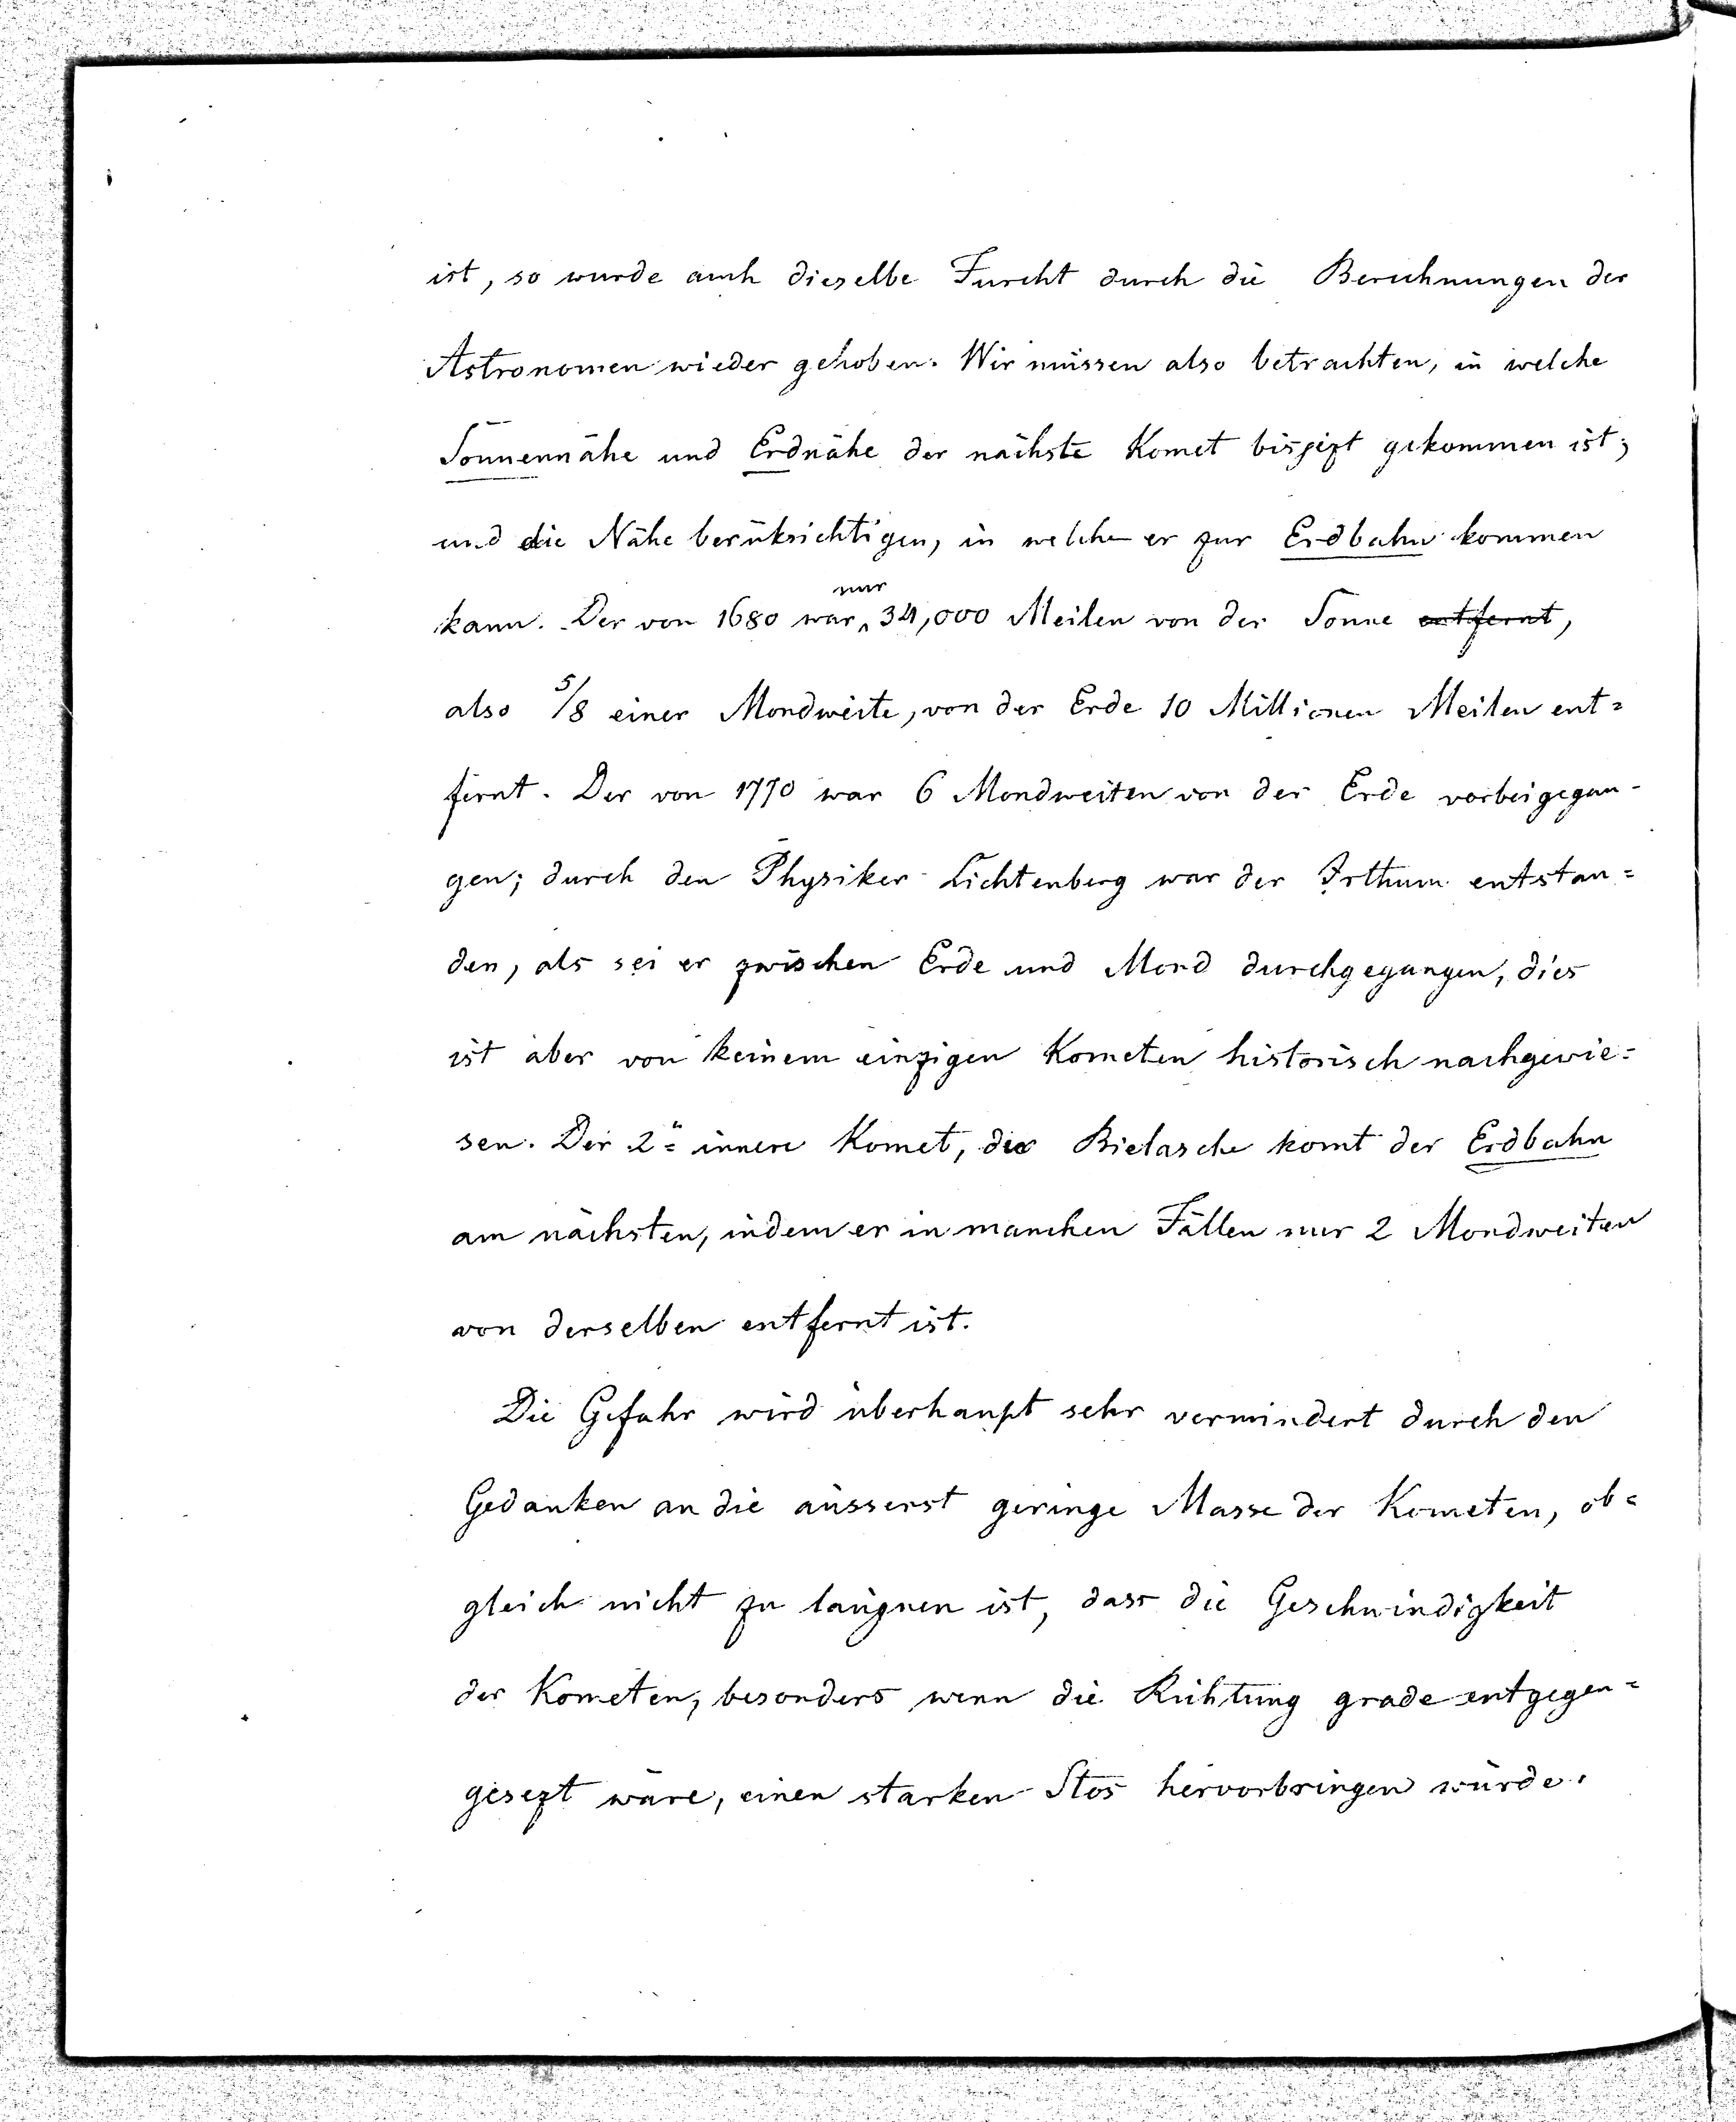 ist, so wurde auch dieselbe Furcht durch die Berechnungen der
Astronomen wieder gehoben. Wir müssen also betrachten, in welche
Sonnennähe und Erdnähe der nächste Komet bisjezt gekommen ist;
und die Nähe berüksichtigen, in welche er zur Erdbahn kommen
nur
kann. Der von 1680 war 34,000 Meilen von der Sonne entfernt,
also 5/8 einer Mondweite, von der Erde 10 Millionen Meilen ent=
fernt. Der von 1770 war 6 Mondweiten von der Erde vorbeigegan-
gen; durch den Physiker Lichtenberg war der Irthum entstan=
den, als sei er zwischen Erde und Mond durchgegangen, dies
ist aber von keinem einzigen Kometen historisch nachgewie=
sen. Der 2te innere Komet, der Bielasche komt der Erdbahn
am nächsten, indem er in manchen Fällen nur 2 Mondweiten
von derselben entfernt ist.
Die Gefahr wird überhaupt sehr vermindert durch den
Gedanken an die äusserst geringe Masse der Kometen, ob=
gleich nicht zu läugnen ist, dass die Geschwindigkeit
der Kometen, besonders wenn die Richtung grade entgegen=
gesezt wäre, einen starken Stos hervorbringen würde.